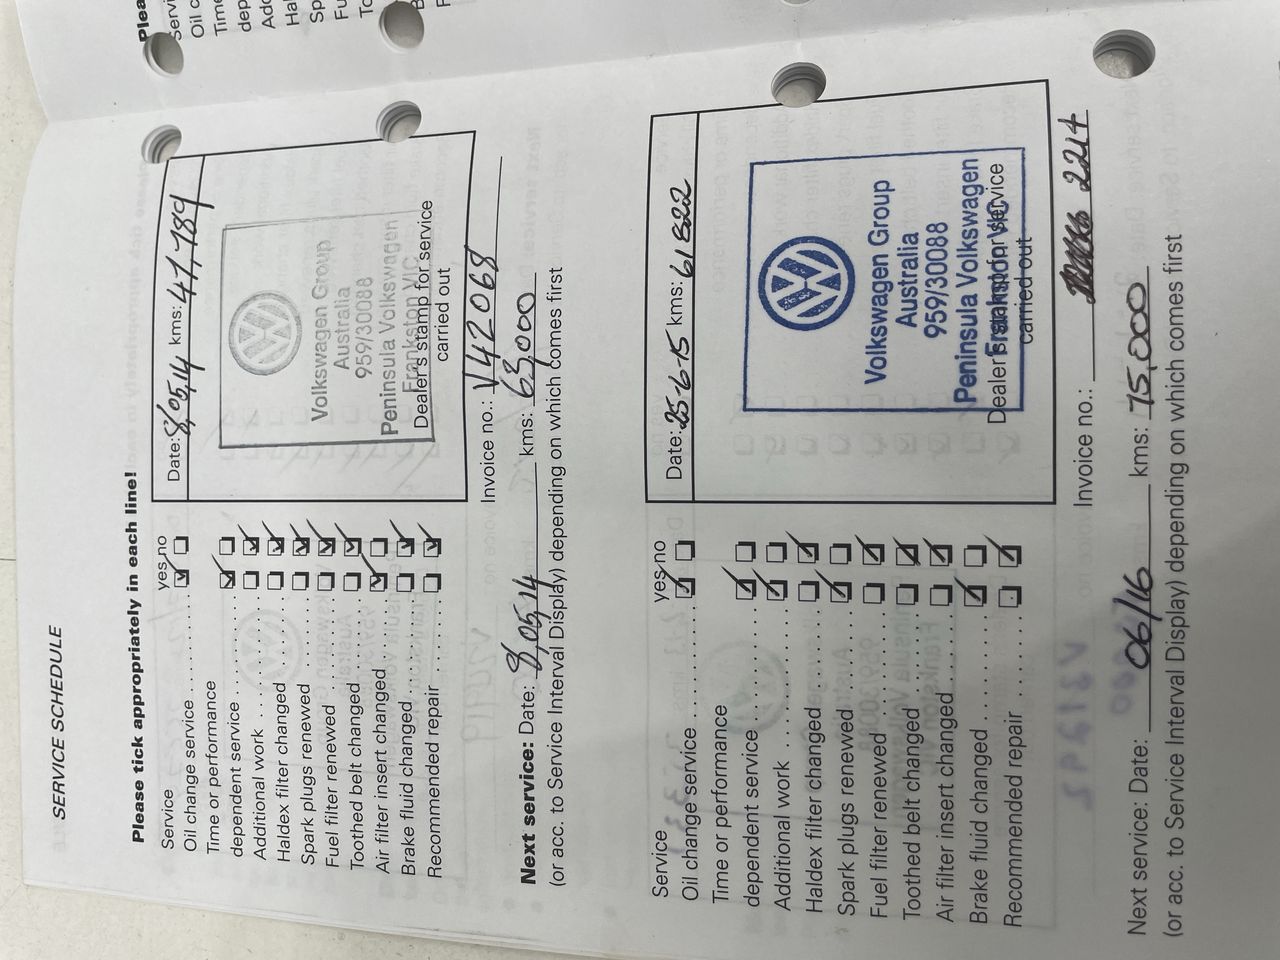 SERVICE SCHEDULE
Please tick appropriately in each line!
Service yes no
Oil change service
Time or performance
dependent service
Additional work
Haldex filter changed
Spark plugs renewed
Fuel filter renewed
Toothed belt changed
Air filter insert changed
Brake fluid changed
Recommended repair
Date: 8/05,14 kms: 47,789
Volkswagen Group
Australia
959/30088
Peninsula Volkswagen
Frankston VIC
Dealer's stamp for service
carried out
Invoice no.: V42068
Next service: Date: 8,05,14 kms: 63,000
(or acc. to Service Interval Display) depending on which comes first
Service yes no
Oil change service
Time or performance
dependent service
Additional work
Haldex filter changed
Spark plugs renewed
Fuel filter renewed
Toothed belt changed
Air filter insert changed
Brake fluid changed
Recommended repair
Date: 25-6-15 kms: 61822
Volkswagen Group
Australia
959/30088
Peninsula Volkswagen
Frankston VIC
Dealer's stamp for service
carried out
Invoice no.: 2217
Next service: Date: 06/16 kms: 75,000
(or acc. to Service Interval Display) depending on which comes first